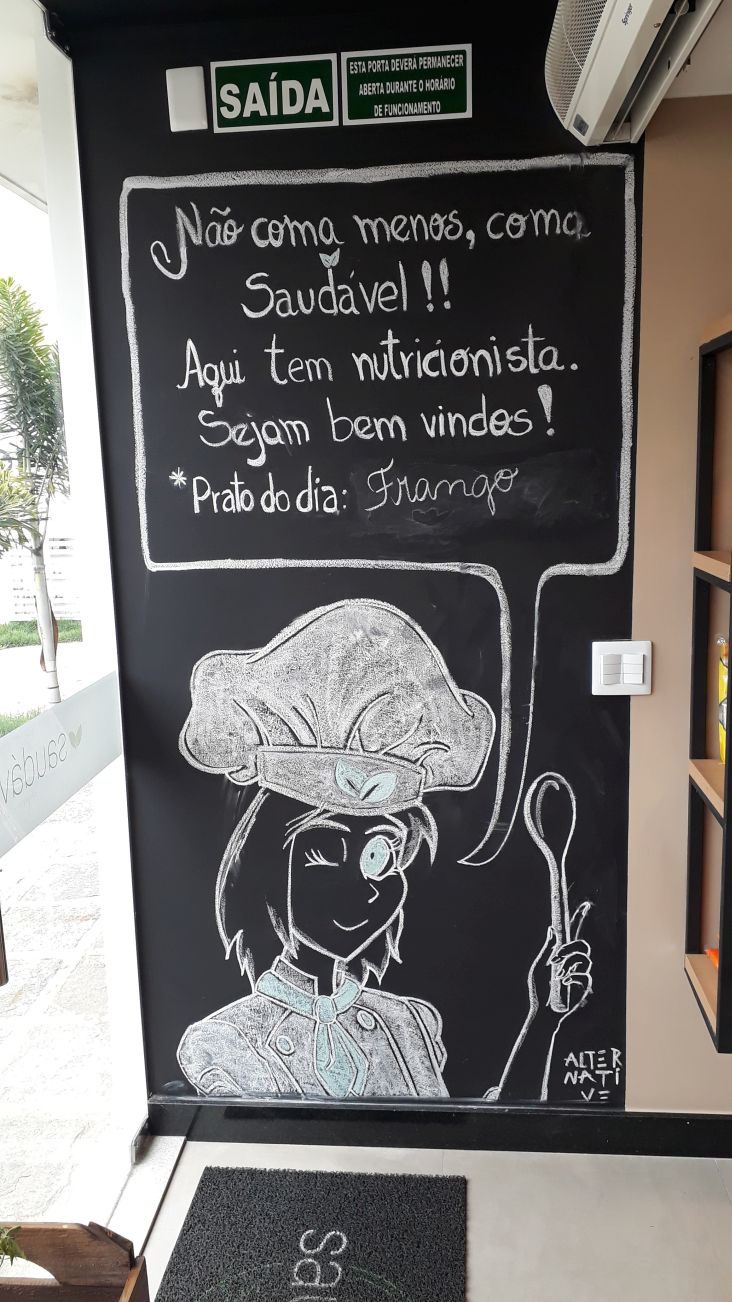 Springer
SAÍDA
ESTA PORTA DEVERÁ PERMANECER
ABERTA DURANTE O HORÁRIO
DE FUNCIONAMENTO
Não coma menos, coma
Saudável!!
Aqui tem nutricionista.
Sejam bem vindos!
*Prato do dia: Frango
ALTER
NATI
VE